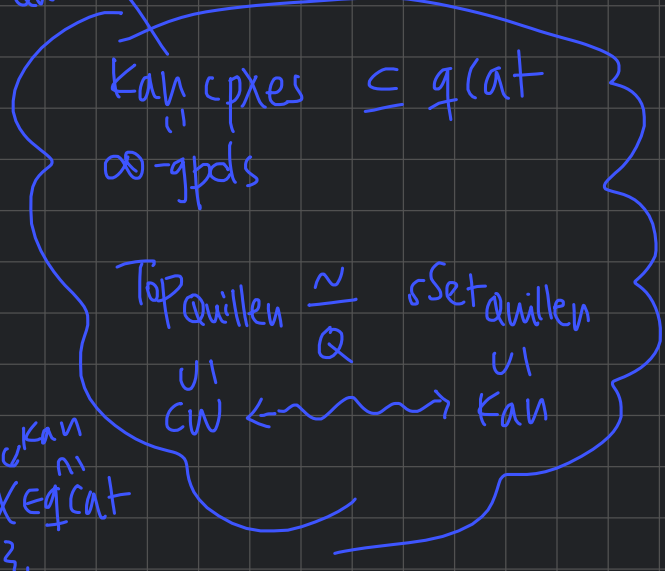 Kan cpxes ⊆ qcat
"
∞-gpds
Top_Quillen ≃_Q sSet_Quillen
∪| ∪|
CW ⟷ Kan
Kan
∩
X ∈ qcat